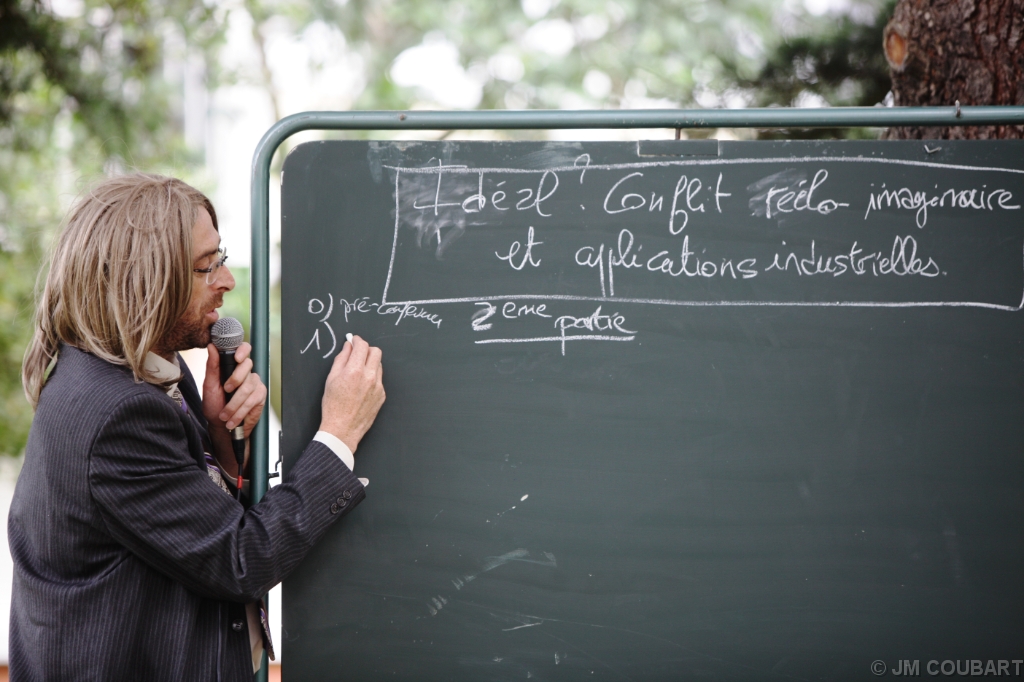 Idéal ? Conflit réélo-imaginaire
et applications industrielles.
0) pré-conférence 2eme partie
1)
© JM COUBART